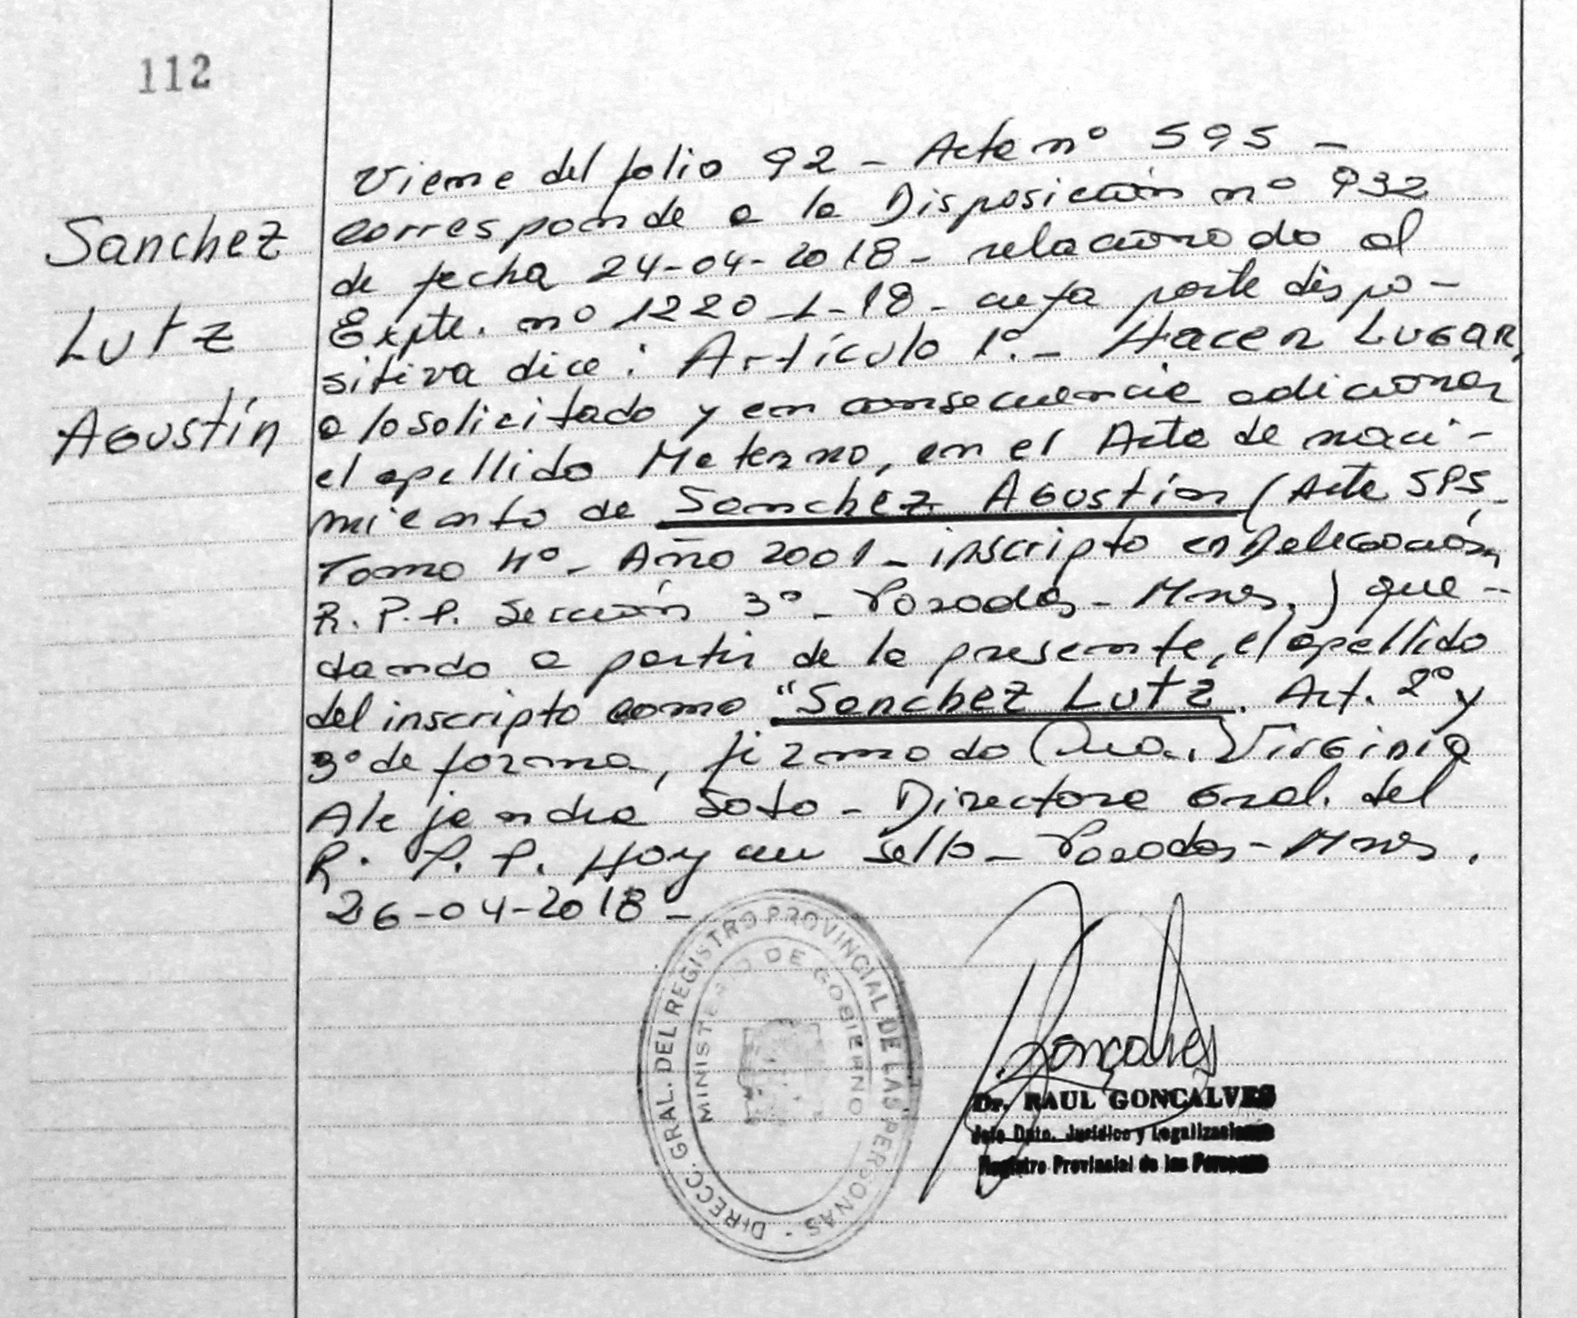 112
Sanchez
Lutz
Agustín
Viene del folio 92 - Acta nº 595 -
corresponde a la Disposición nº 932
de fecha 24-04-2018 - relacionado al
Expte. nº 1220-L-18 - cuya parte dispo-
sitiva dice: Artículo 1º.- HACER LUGAR,
a lo solicitado y en consecuencia adicionar
el apellido Materno, en el Acta de naci-
miento de Sanchez Agustín (Acta 595
Tomo 4º - Año 2001 - inscripto en Delegación
R.P.P. Sección 3º - Posadas - Mnes.) que-
dando a partir de la presente, el apellido
del inscripto como "Sanchez Lutz. Art. 2º y
3º de forma, firmado Virginia
Alejandra Soto - Directora Gral. del
R.P.P. Hay un sello - Posadas - Mnes.
26-04-2018 -
DIRECC. GRAL. DEL REGISTRO PROVINCIAL DE LAS PERSONAS
MINISTERIO DE GOBIERNO
Goncalves
Dr. RAUL GONCALVES
Jefe Dpto. Jurídico y Legalizaciones
Registro Provincial de las Personas